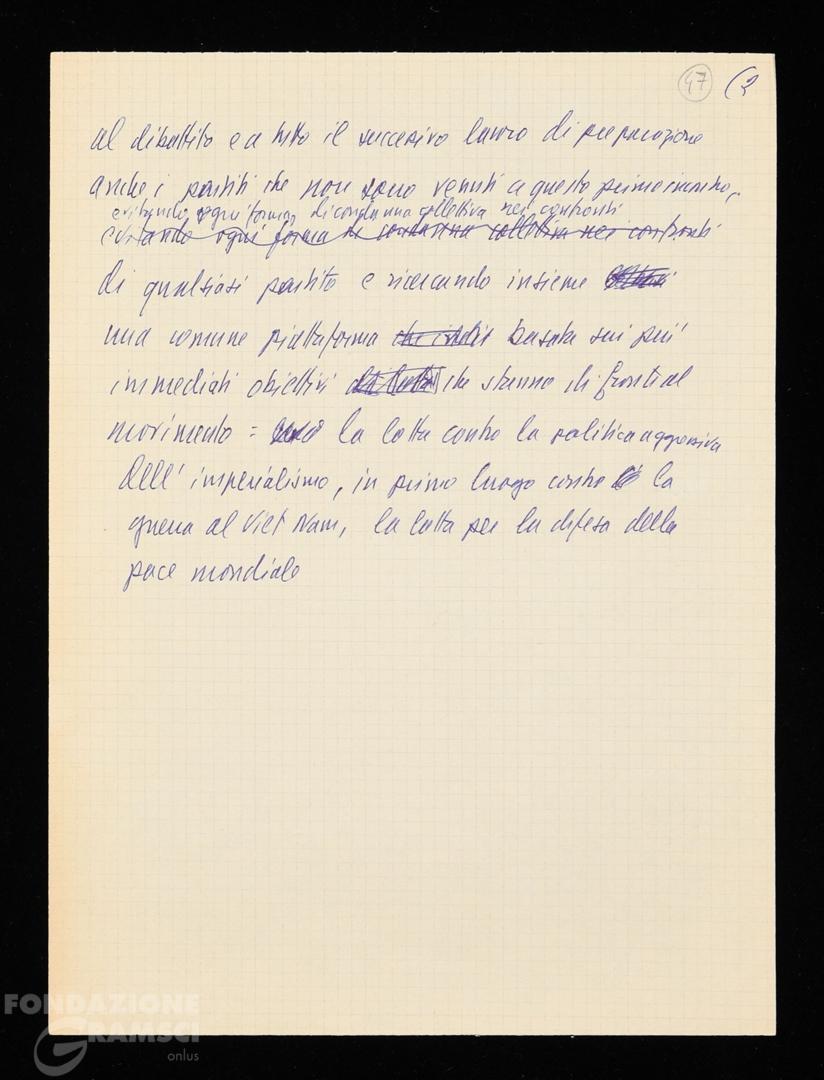 47 (2
al dibattito e a tutto il successivo lavoro di preparazione
anche i partiti che non sono venuti a questo primo incontro,
evitando ogni forma di condanna collettiva nei confronti
evitando ogni forma di condanna collettiva nei confronti
di qualsiasi partito e ricercando insieme
una comune piattaforma basata sui più
immediati obiettivi che stanno di fronte al
movimento = la lotta contro la politica aggressiva
dell'imperialismo, in primo luogo contro la
guerra al Viet Nam, la lotta per la difesa della
pace mondiale
FONDAZIONE
GRAMSCI
onlus